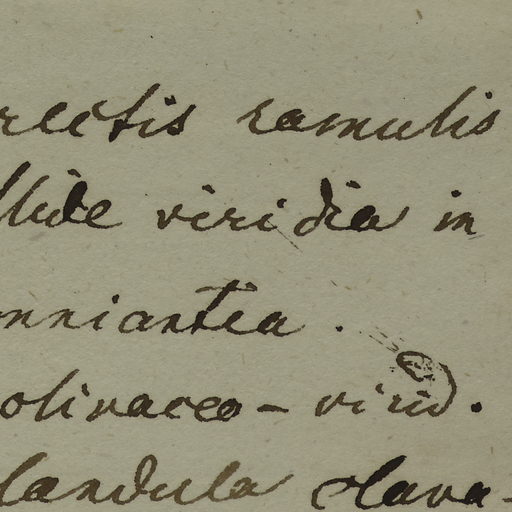 rectis ramulis
llide viridia in
nniantea.
olivaceo - virid.
landula clava-